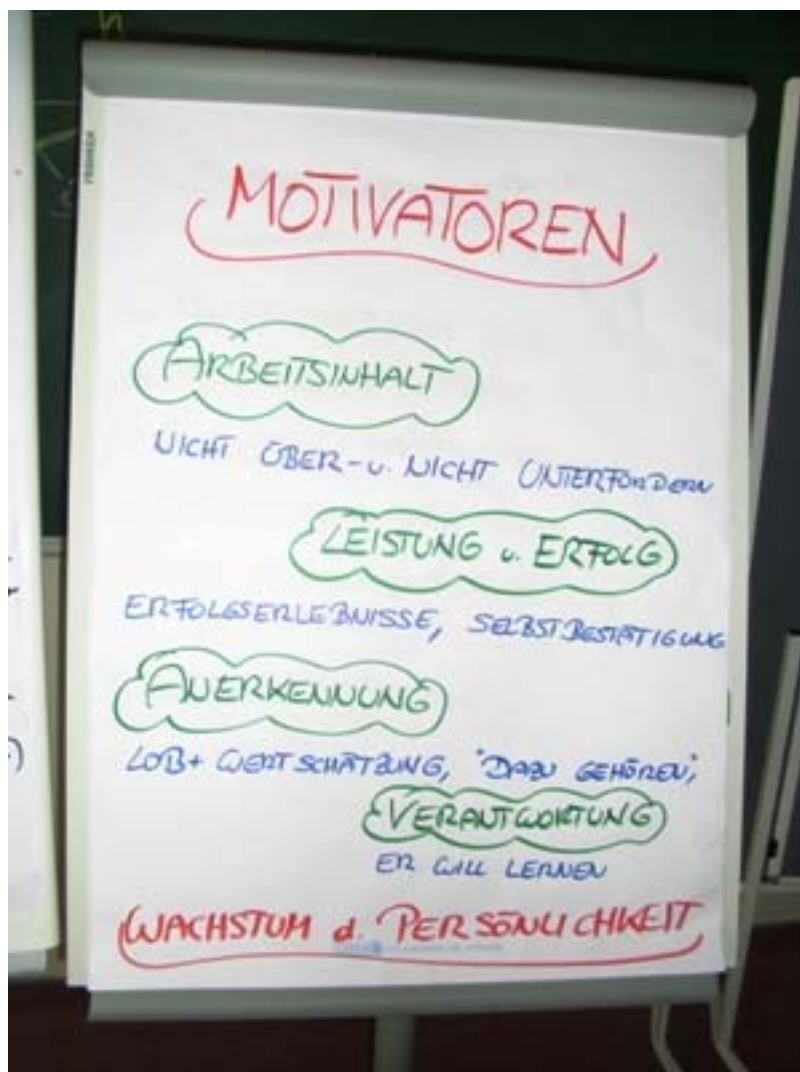 MOTIVATOREN
ARBEITSINHALT
NICHT ÜBER- u. NICHT UNTERFORDERN
LEISTUNG u. ERFOLG
ERFOLGSERLEBNISSE, SELBSTBESTÄTIGUNG
ANERKENNUNG
LOB + WERTSCHÄTZUNG, "DAZU GEHÖREN",
VERANTWORTUNG
ER WILL LERNEN
WACHSTUM d. PERSÖNLICHKEIT